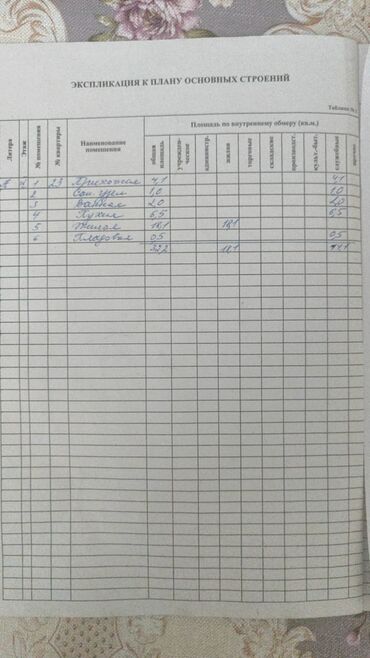 ЭКСПЛИКАЦИЯ К ПЛАНУ ОСНОВНЫХ СТРОЕНИЙ
Таблица №
Литера Этаж № помещения № квартиры Наименование помещения Площадь по внутреннему обмеру (кв.м.)
общая площадь учрежденческое администр. жилая торговые складские производст. культ.-быт. служебные прочие
А 1 23 Прихожая 4,1 4,1
2 Сан. узел 1,0 1,0
3 Ванная 2,0 2,0
4 Кухня 6,5 6,5
5 Жилая 18,1 18,1
6 Кладовая 0,5 0,5
32,2 18,1 14,1